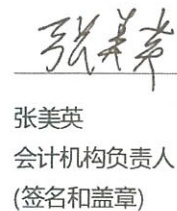 张美英
张美英
会计机构负责人
(签名和盖章)